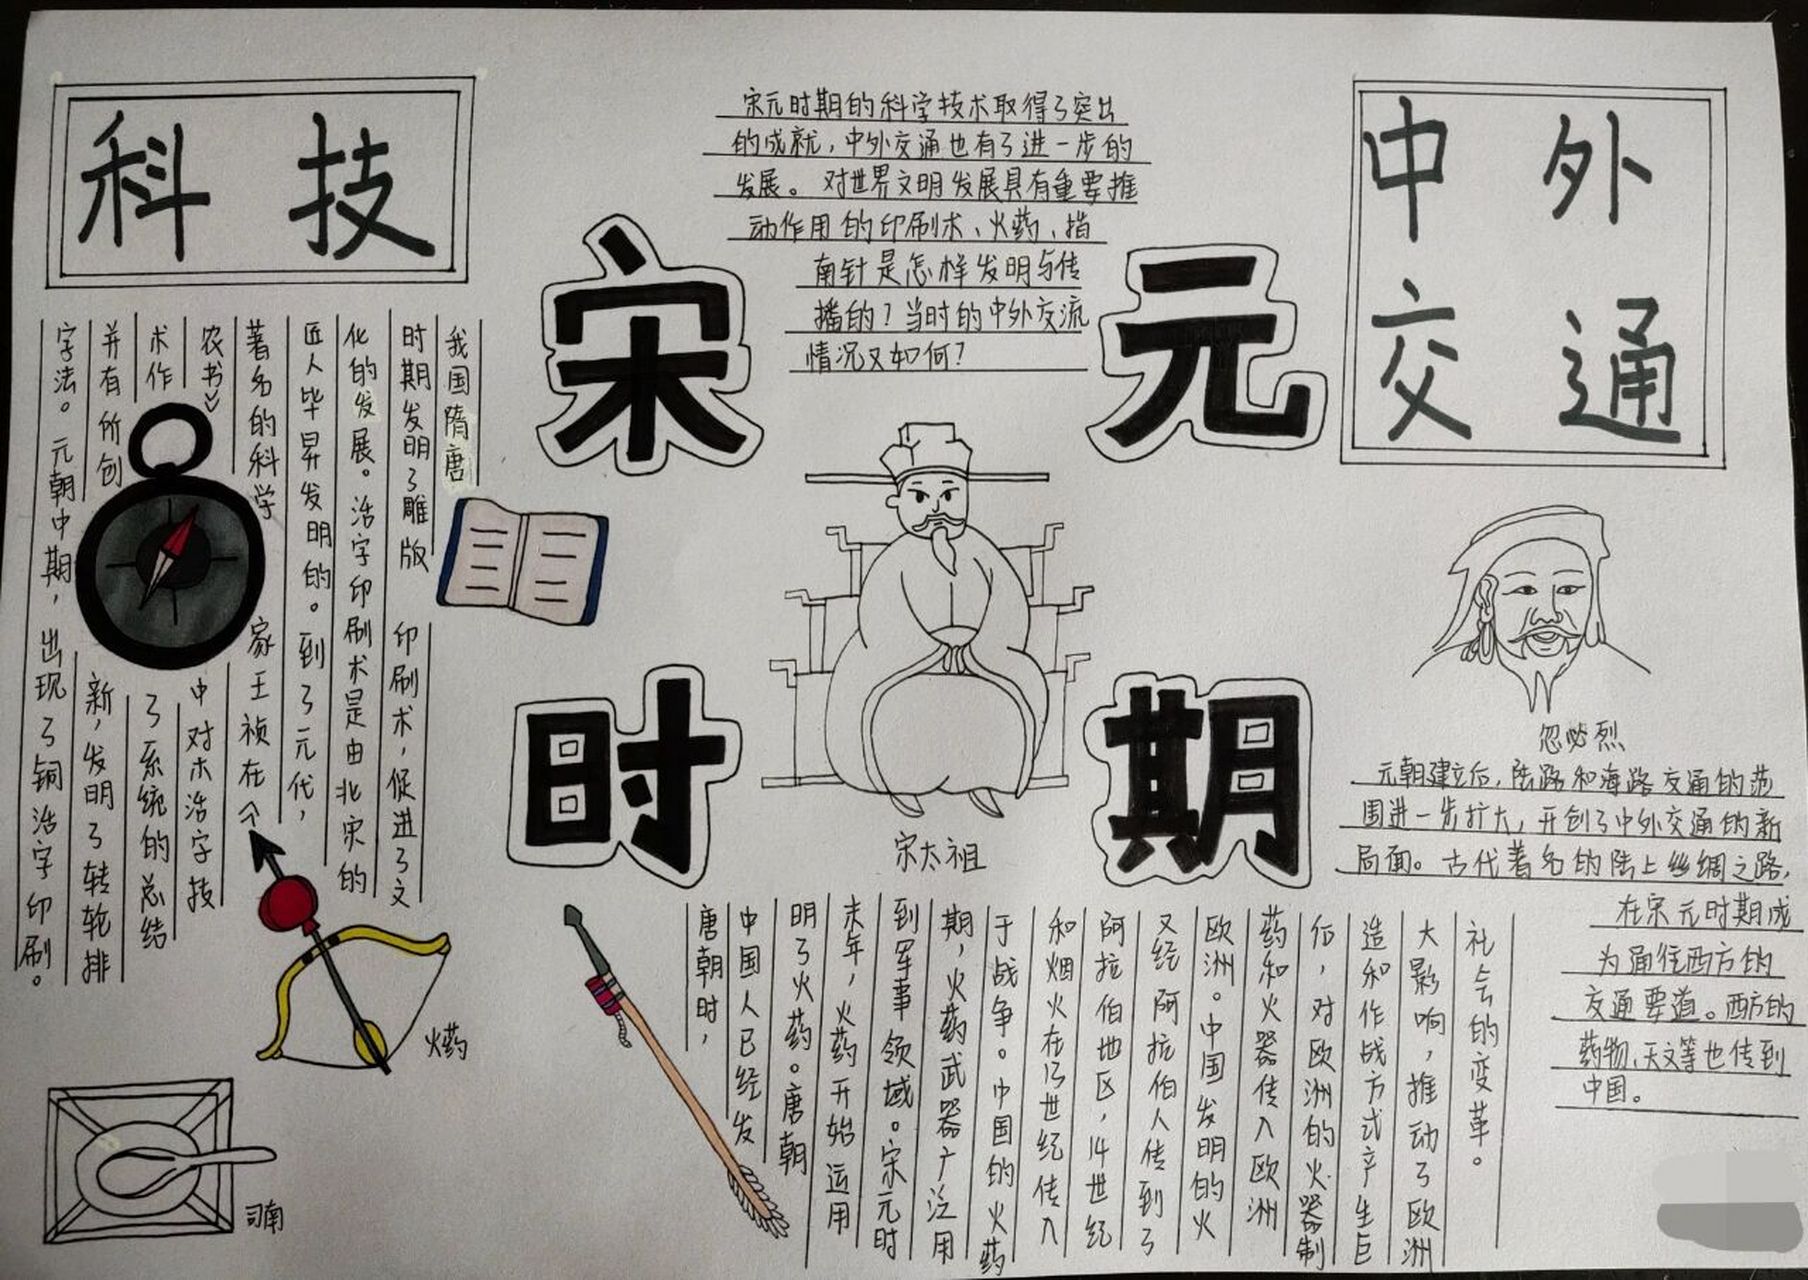 科技
宋元时期的科学技术取得了突出
的成就，中外交通也有了进一步的
发展。对世界文明发展具有重要推
动作用的印刷术、火药、指
南针是怎样发明与传
播的？当时的中外交流
情况又如何？
中外
交通
宋元
时期
我国隋唐
时期发明了雕版印刷术，促进了文
化的发展。活字印刷术是由北宋的
匠人毕昇发明的。到了元代，
著名的科学家王祯在《
农书》中对木活字技
术作了系统的总结
并有所创新，发明了转轮排
字法。元朝中期，出现了铜活字印刷。
宋太祖
忽必烈
元朝建立后，陆路和海路交通的范
围进一步扩大，开创了中外交通的新
局面。古代著名的陆上丝绸之路，
在宋元时期成
为通往西方的
交通要道。西方的
药物、天文等也传到
中国。
火药
司南
唐朝时，
中国人已经发
明了火药。唐朝
末年，火药开始运用
到军事领域。宋元时
期，火药武器广泛用
于战争。中国的火药
和烟火在13世纪传入
阿拉伯地区，14世纪
又经阿拉伯人传到了
欧洲。中国发明的火
药和火器传入欧洲
后，对欧洲的火器制
造和作战方式产生巨
大影响，推动了欧洲
社会的变革。